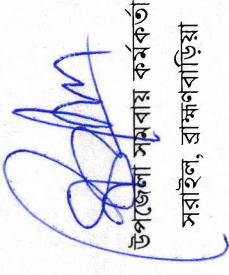 উপজেলা সমবায় কর্মকর্তা
সরাইল, ব্রাহ্মণবাড়িয়া